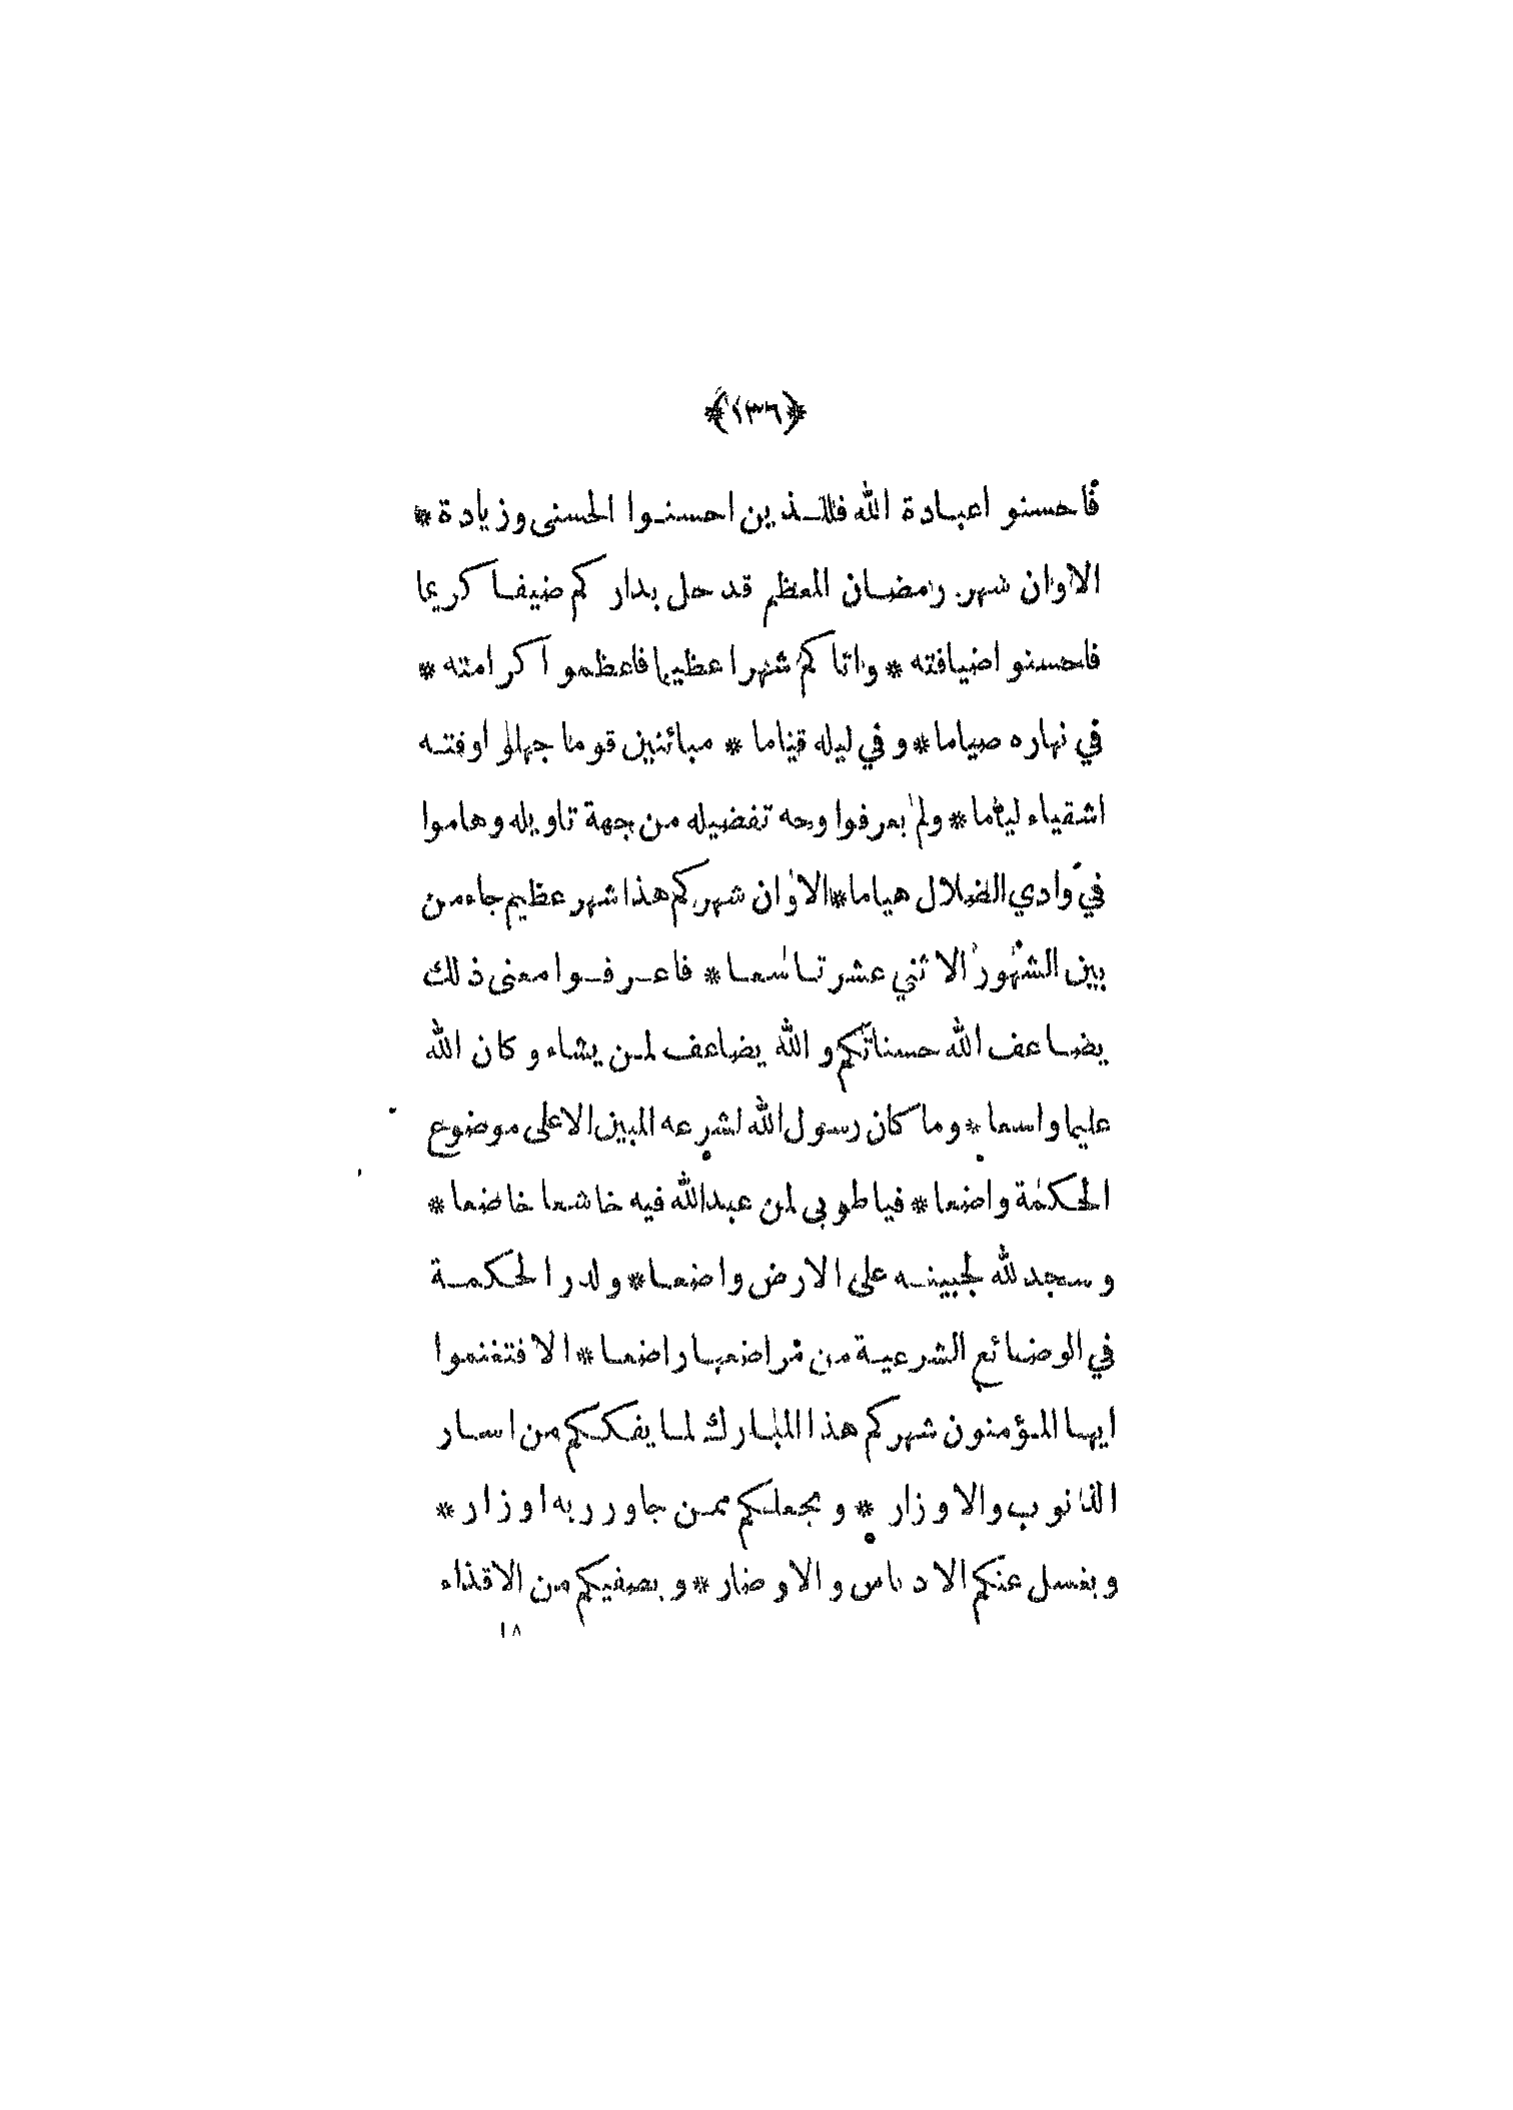 ﴿١٣٦﴾
فاحسنوا عبادة الله فللذين احسنوا الحسنى وزيادة *
الا وان شهر رمضان المعظم قد حل بداركم ضيفا كريما
فاحسنوا ضيافته * واتاكم شهرا عظيما فاعظموا كرامته *
في نهاره صياما * وفي ليله قياما * مبائنين قوما جهلوا وفته
اشقياء لياما * ولم يعرفوا وجه تفضيله من جهة تاويله وهاموا
في وادي الضلال هياما * الا وان شهركم هذا شهر عظيم جاء من
بين الشهور الاثني عشر تاسعا * فاعرفوا معنى ذلك
يضاعف الله حسناتكم والله يضاعف لمن يشاء وكان الله
عليما واسعا * وما كان رسول الله لشرعه المبين الا على موضوع
الحكمة واضعا * فيا طوبى لمن عبد الله فيه خاشعا خاضعا *
وسجد لله لجبينه على الارض واضعا * ولدر الحكمة
في الوضائع الشرعية من مراضعها راضعا * الا فتغنموا
ايها المؤمنون شهركم هذا المبارك لما يفككم من اسار
الذنوب والاوزار * ويجعلكم ممن جاور ربه او زار *
ويغسل عنكم الادناس والاوضار * ويصفيكم من الاقذاء
١٨